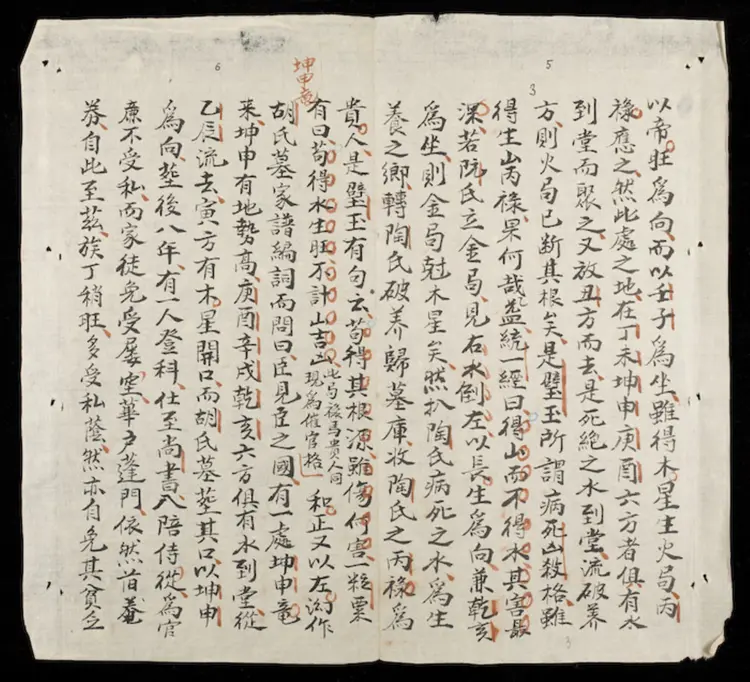 5
以帝旺爲向而以壬子爲坐雖得木星生火局丙
祿應之然此處之地在丁未坤申庚酉六方者俱有水
到堂而聚之又放丑方而去是死絕之水到堂流破养
方則火局已断其根矣是璧玉所謂病死凶殺格雖
得生山丙祿果何哉盖統一經曰得山而不得水其害最
深若阮氏立金局見右水倒左以長生爲向兼乾亥
爲坐則金局尅木星矣然扒陶氏病死之水爲生
養之鄉轉陶氏破养歸墓庫收陶氏之丙祿爲
3
3
6
坤申意
貴人是璧玉有句云苟得其根源雖傷何害一粒粟
有曰苟得水生旺不計山吉凶此局祿马貴人同現爲催官格 和正又以左泑作
胡氏墓家譜編詞而問曰臣見臣之國有一處坤申竜
来坤申有地勢高庚酉辛戌乾亥六方俱有水到堂從
乙辰流去寅方有木星開口而胡氏墓塟其口以坤申
爲向塟後八年有一人登科仕至尚書入陪侍從爲官
亷不受私而家徒免受屡空華户蓬門依然昔菴
券自此至茲族丁稍旺多受私蔭然亦自免其貧乏